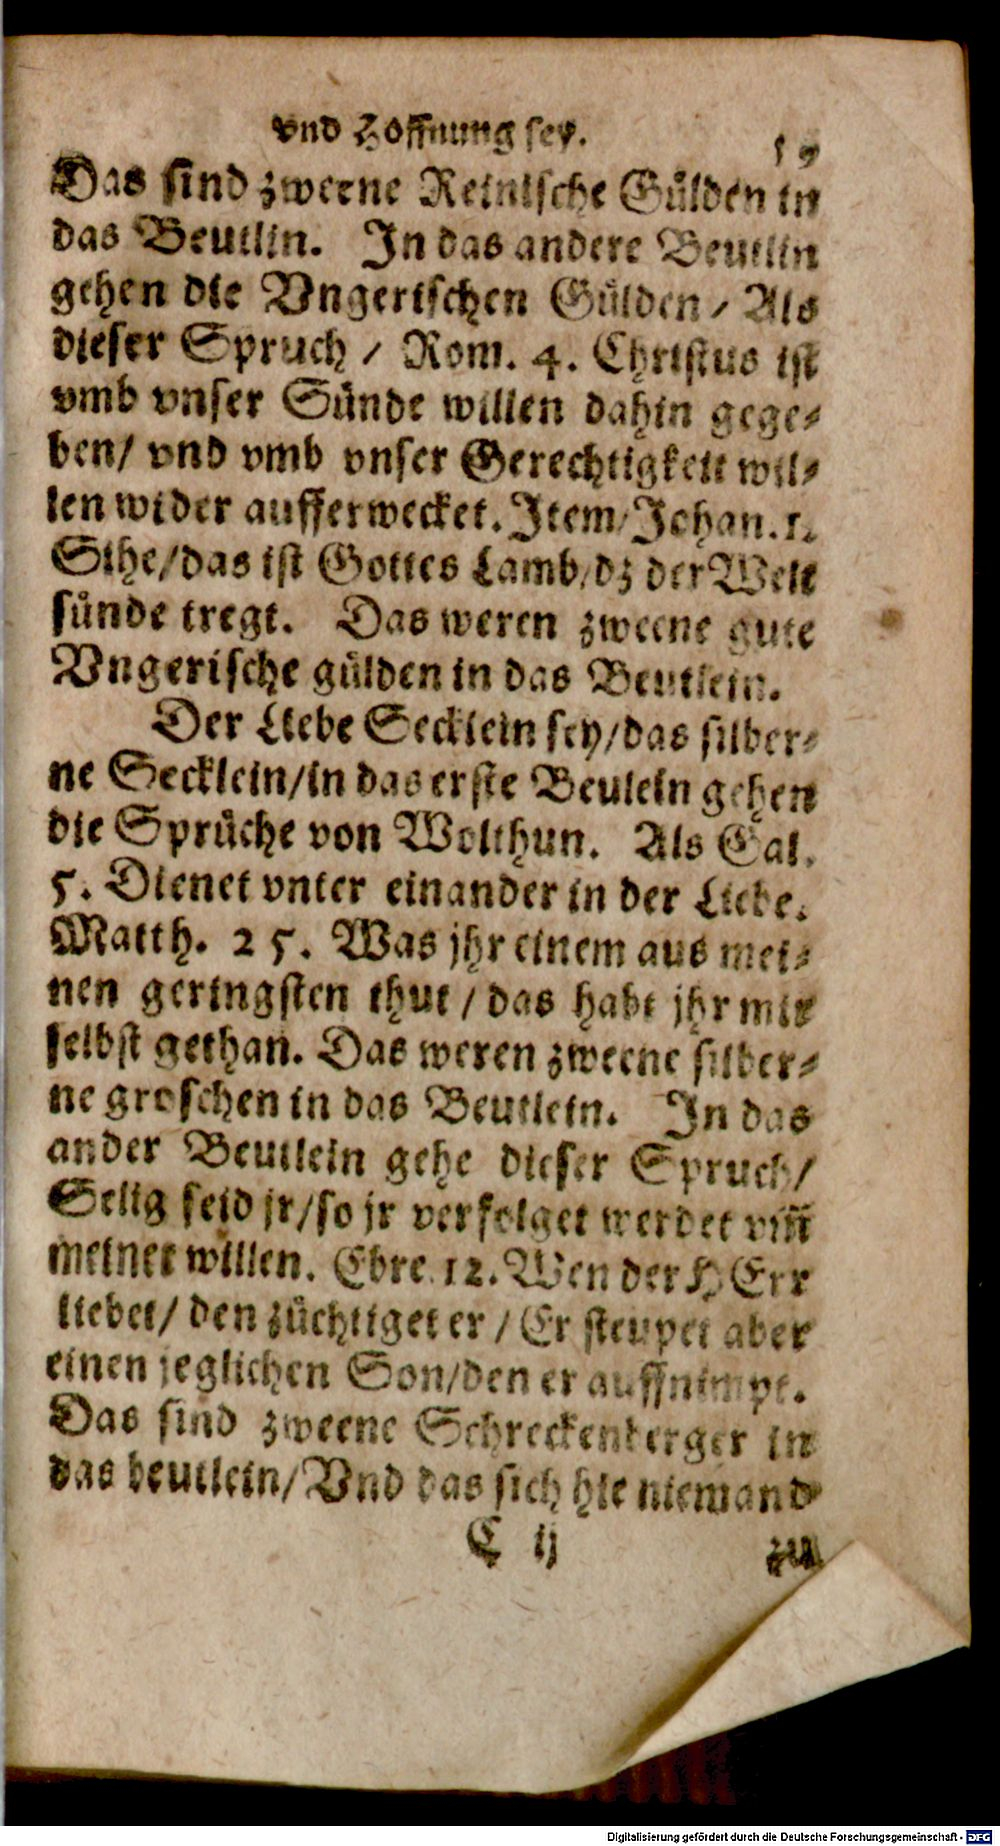 vnd Hoffnung sey.
19
Das sind zweene Reinische Gülden in
das Beutlin. In das andere Beutlin
gehen die Vngerischen Gülden / Als
dieser Spruch / Rom. 4. Christus ist
vmb vnser Sünde willen dahin gege-
ben/ vnd vmb vnser Gerechtigkeit wil-
len wider aufferwecket. Item/ Johan. 1.
Sihe/das ist Gottes Lamb/dz der Welt
sünde tregt. Das weren zweene gute
Vngerische gülden in das Beutlein.
Der Liebe Secklein sey/das silber-
ne Secklein/in das erste Beulein gehen
die Sprüche von Wolthun. Als Gal.
5. Dienet vnter einander in der Liebe.
Matth. 25. Was jhr einem aus mei-
nen geringsten thut / das habt jhr mir
selbst gethan. Das weren zweene silber-
ne groschen in das Beutlein. In das
ander Beutlein gehe dieser Spruch/
Selig seid jr/so jr verfolget werdet vm̃
meinet willen. Ebre. 12. Wen der HErr
liebet/ den züchtiget er / Er steupet aber
einen jeglichen Son/den er auffnimpt.
Das sind zweene Schreckenberger in
das beutlein/Vnd das sich hie niemand
C ij
zu
Digitalisierung gefördert durch die Deutsche Forschungsgemeinschaft - DFG